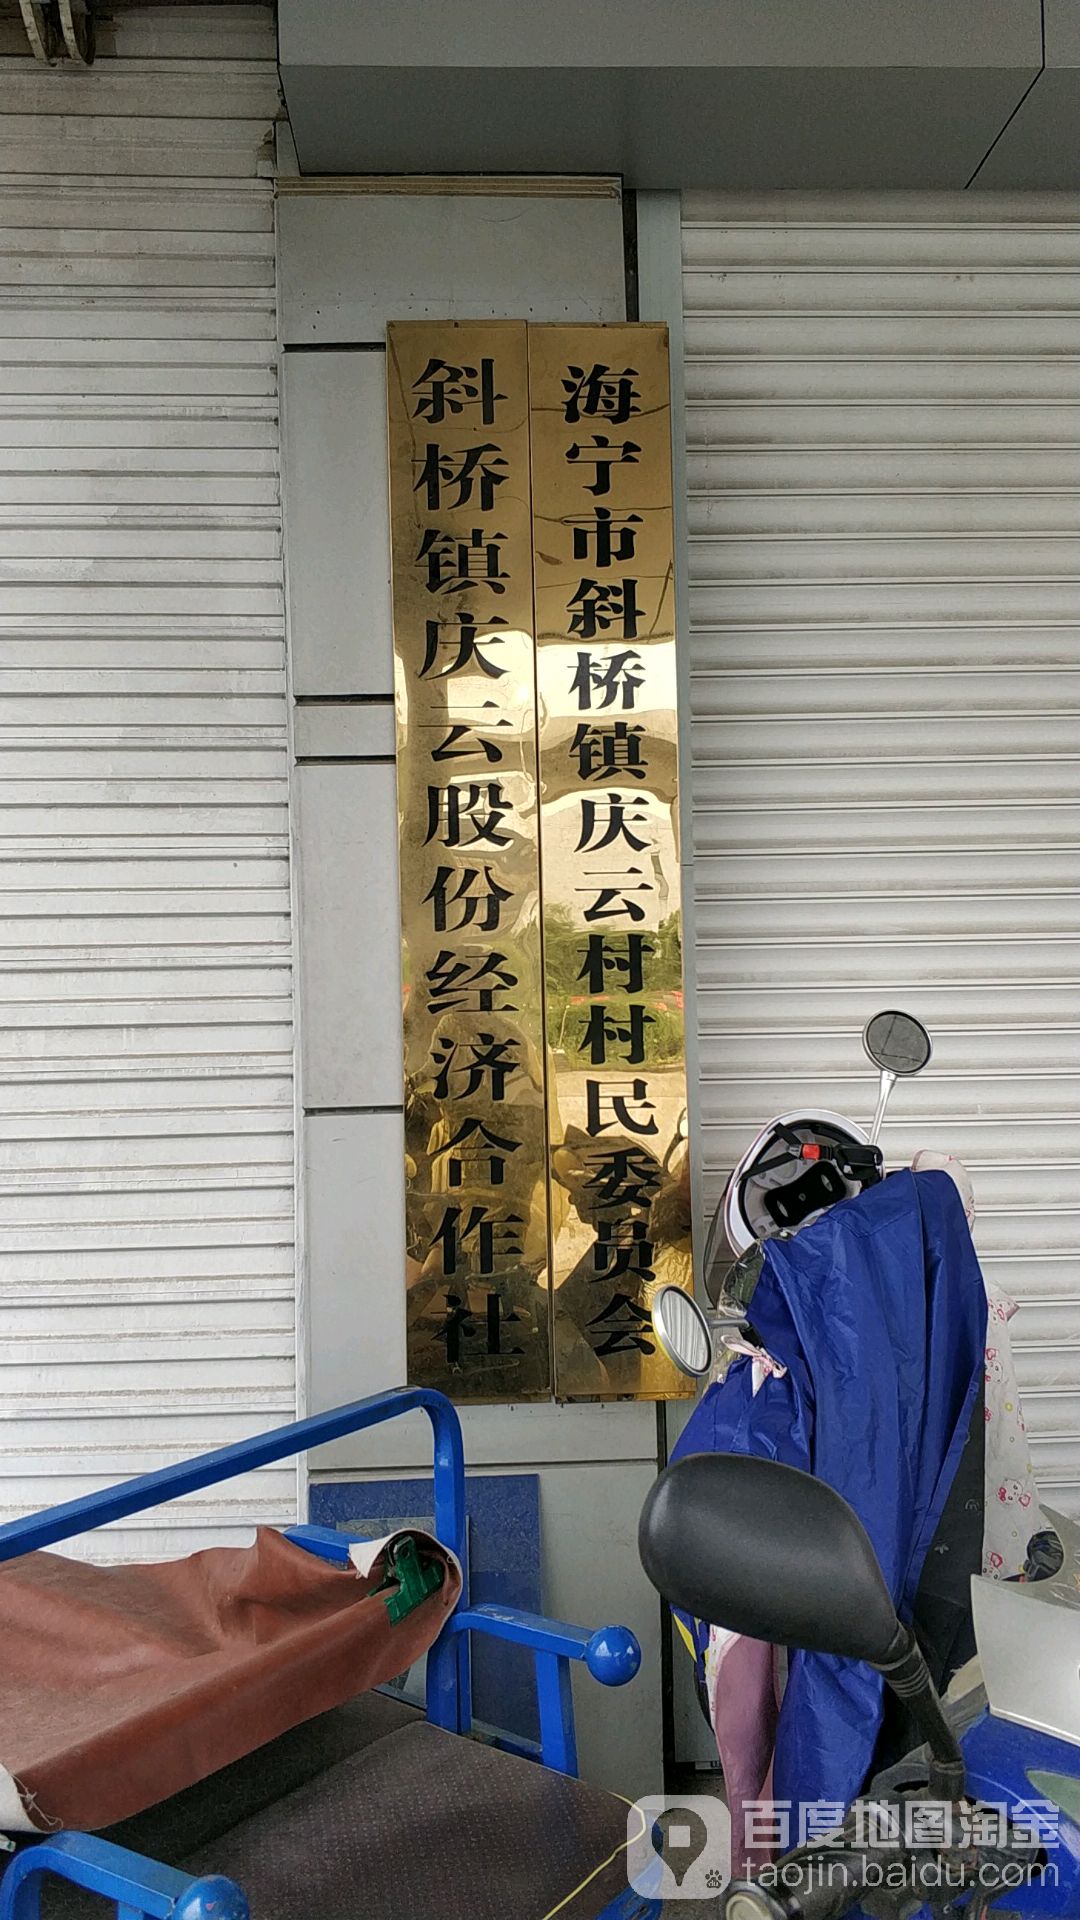 海宁市斜桥镇庆云村村民委员会
斜桥镇庆云股份经济合作社
百度地图淘金
taojin.baidu.com